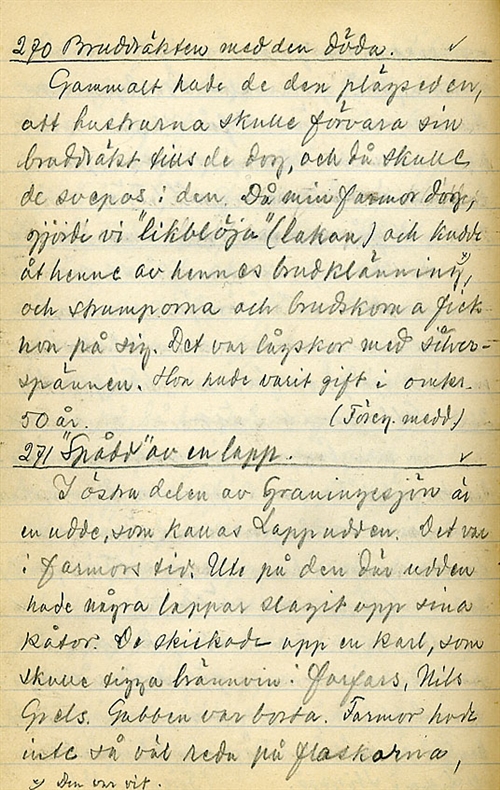 270 Bruddräkten med den döda. ✓
Gammalt hade de den plägseden,
att hustrurna skulle förvara sin
bruddräkt tills de dog, och då skulle
de svepas i den. Då min farmor dog,
gjorde vi "liksblöja" (lakan) och kudde
åt henne av hennes brudklänning x),
och strumporna och brudskorna fick
hon på sig. Det var lågskor med silver-
spännen. Hon hade varit gift i omkr.
50 år. (Föreg. medd.)
271 "Spådd" av en lapp. ✓
I östra delen av Graningesjön är
en udde, som kallas Lappudden. Det var
i farmors tid. Ute på den där udden
hade några lappar slagit upp sina
kåtor. De skickade upp en karl, som
skulle tigga brännvin i farfars, Nils
Grels. Gubben var borta. Farmor hade
inte så väl reda på flaskorna,
x) Den var vit.